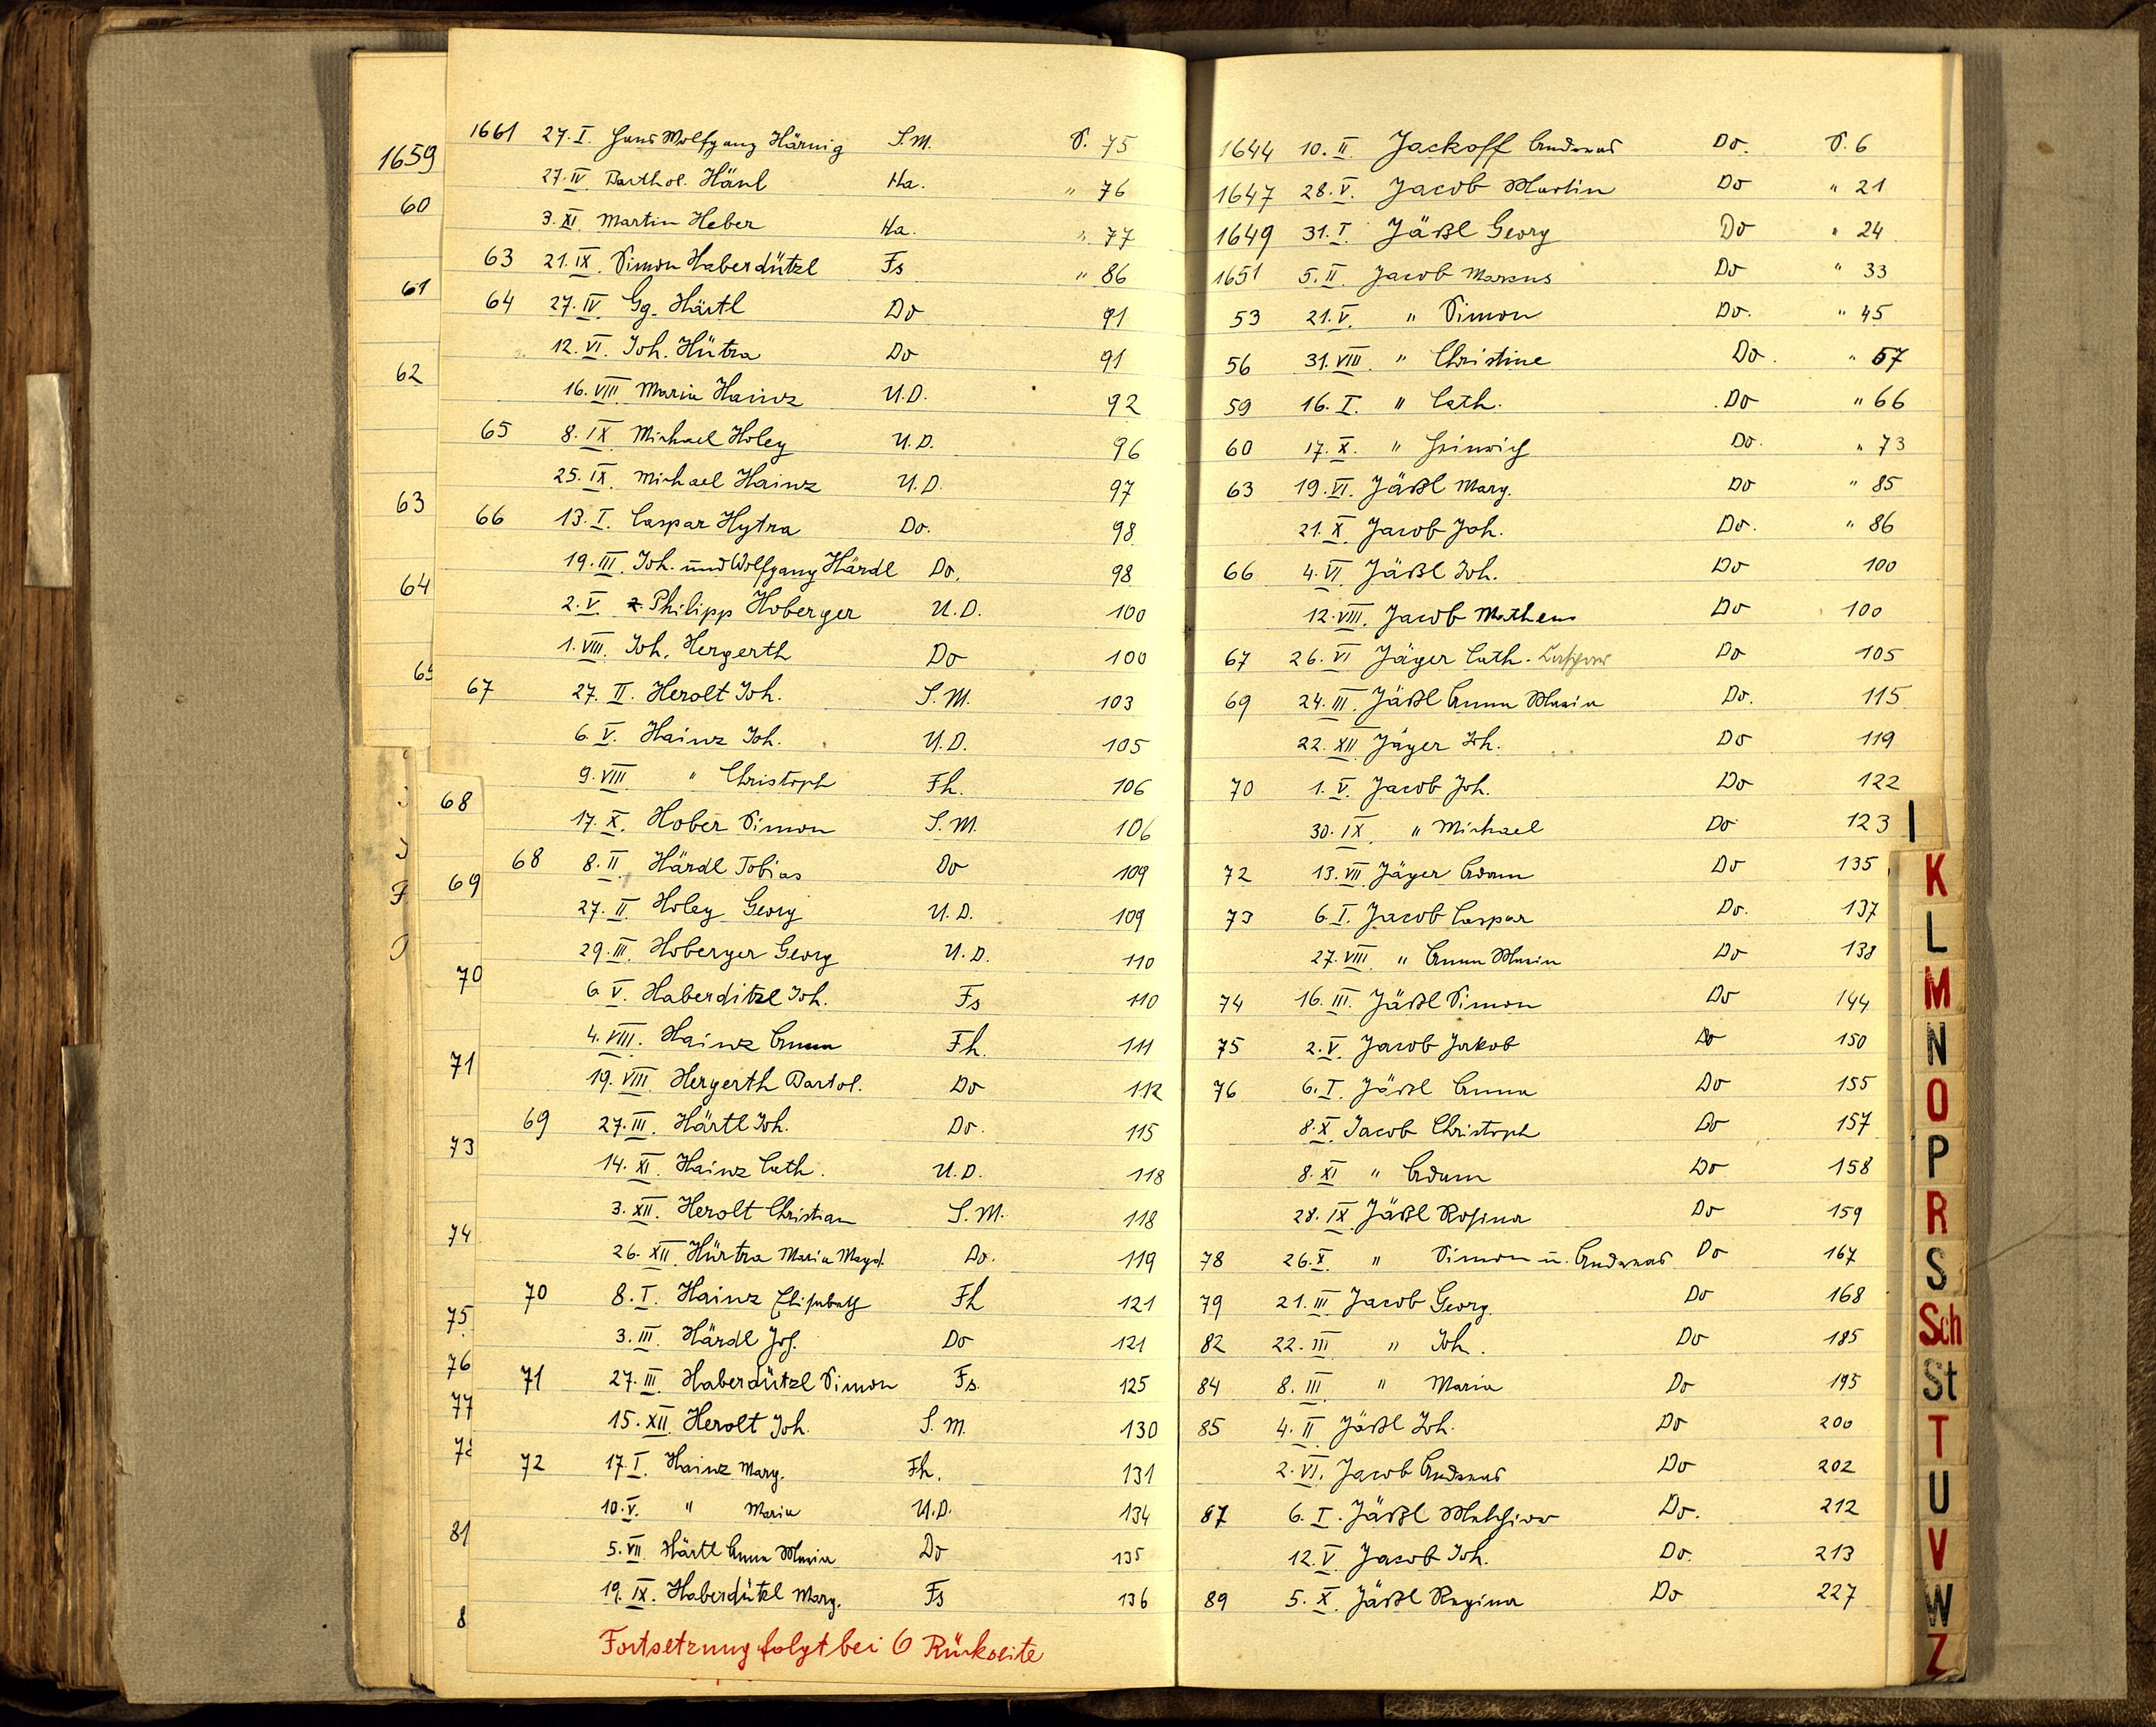 1659
60
61
62
63
64
65
68
69
70
71
73
74
75
76
77
81
8
1661 27.I. Hans Wolfgang Härnig S.M. S. 75
27.IV. Barthol. Hänl Ha. " 76
3.XI. Martin Heber Ha. " 77
63 21.IX. Simon Haberdützl Fs " 86
64 27.IV. Gg. Härtl Do 91
12.VI. Joh. Hütra Do 91
16.VIII. Maria Hainz U.D. 92
65 8.IX. Michael Holey U.D. 96
25.IX. Michael Hainz U.D. 97
66 13.I. Caspar Hytra Do. 98
19.III. Joh. und Wolfgang Härdl Do. 98
2.V. Philipp Hoberger U.D. 100
1.VIII. Joh. Hergerth Do 100
67 27.II. Herolt Joh. S.M. 103
6.V. Hainz Joh. U.D. 105
9.VIII. " Christoph Fh. 106
17.X. Hober Simon S.M. 106
68 8.II. Härdl Tobias Do 109
27.II. Holey Georg U.D. 109
29.III. Hoberger Georg U.D. 110
6.V. Haberditzl Joh. Fs 110
4.VIII. Hainz Anna Fh. 111
19.VIII. Hergerth Bartol. Do 112
69 27.III. Härtl Joh. Do. 115
14.XI. Hainz Cath. U.D. 118
3.XII. Herolt Christian S.M. 118
26.XII. Hürtra Maria Magd. Do. 119
70 8.I. Hainz Elisabeth Fh 121
3.III. Härdl Jos. Do 121
71 27.III. Haberdützl Simon Fs. 125
15.XII. Herolt Joh. S.M. 130
72 17.I. Hainz Marg. Fh. 131
10.V. " Maria U.D. 134
5.VII. Härtl Anna Maria Do 135
19.IX. Haberdützl Marg. Fs 136
Fortsetzung folgt bei 6 Rückseite
1644 10.II. Jackoff Andreas Do. S. 6
1647 28.V. Jacob Martin Do " 21
1649 31.I. Jäßl Georg Do " 24
1651 5.II. Jacob Marcus Do " 33
53 21.V. " Simon Do. " 45
56 31.VIII. " Christine Do. " 57
59 16.I. " Cath. Do " 66
60 17.X. " Heinrich Do. " 73
63 19.VI. Jäßl Marg. Do " 85
21.X. Jacob Joh. Do. " 86
66 4.VI. Jäßl Joh. Do 100
12.VIII. Jacob Matheus Do 100
67 26.VI Jäger Cath. Do 105
69 24.III. Jäßl Anna Maria Do. 115
22.XII Jäger Joh. Do 119
70 1.V. Jacob Joh. Do 122
30.IX. " Michael Do 123
72 13.VII Jäger Adam Do 135
73 6.I. Jacob Caspar Do. 137
27.VIII. " Anna Maria Do 138
74 16.III. Jäßl Simon Do 144
75 2.V. Jacob Jakob Do 150
76 6.I. Jäßl Anna Do 155
8.X. Jacob Christoph Do 157
8.XI " Adam Do 158
28.IX Jäßl Rosina Do 159
78 26.X. " Simon u. Andreas Do 167
79 21.III Jacob Georg. Do 168
82 22.III " Joh. Do 185
84 8.III " Maria Do 195
85 4.II Jäßl Joh. Do 200
2.VI. Jacob Andreas Do 202
87 6.I. Jäßl Melchior Do. 212
12.V. Jacob Joh. Do. 213
89 5.X. Jäßl Regina Do 227
I
K
L
M
N
O
P
R
S
Sch
St
T
U
V
W
Z